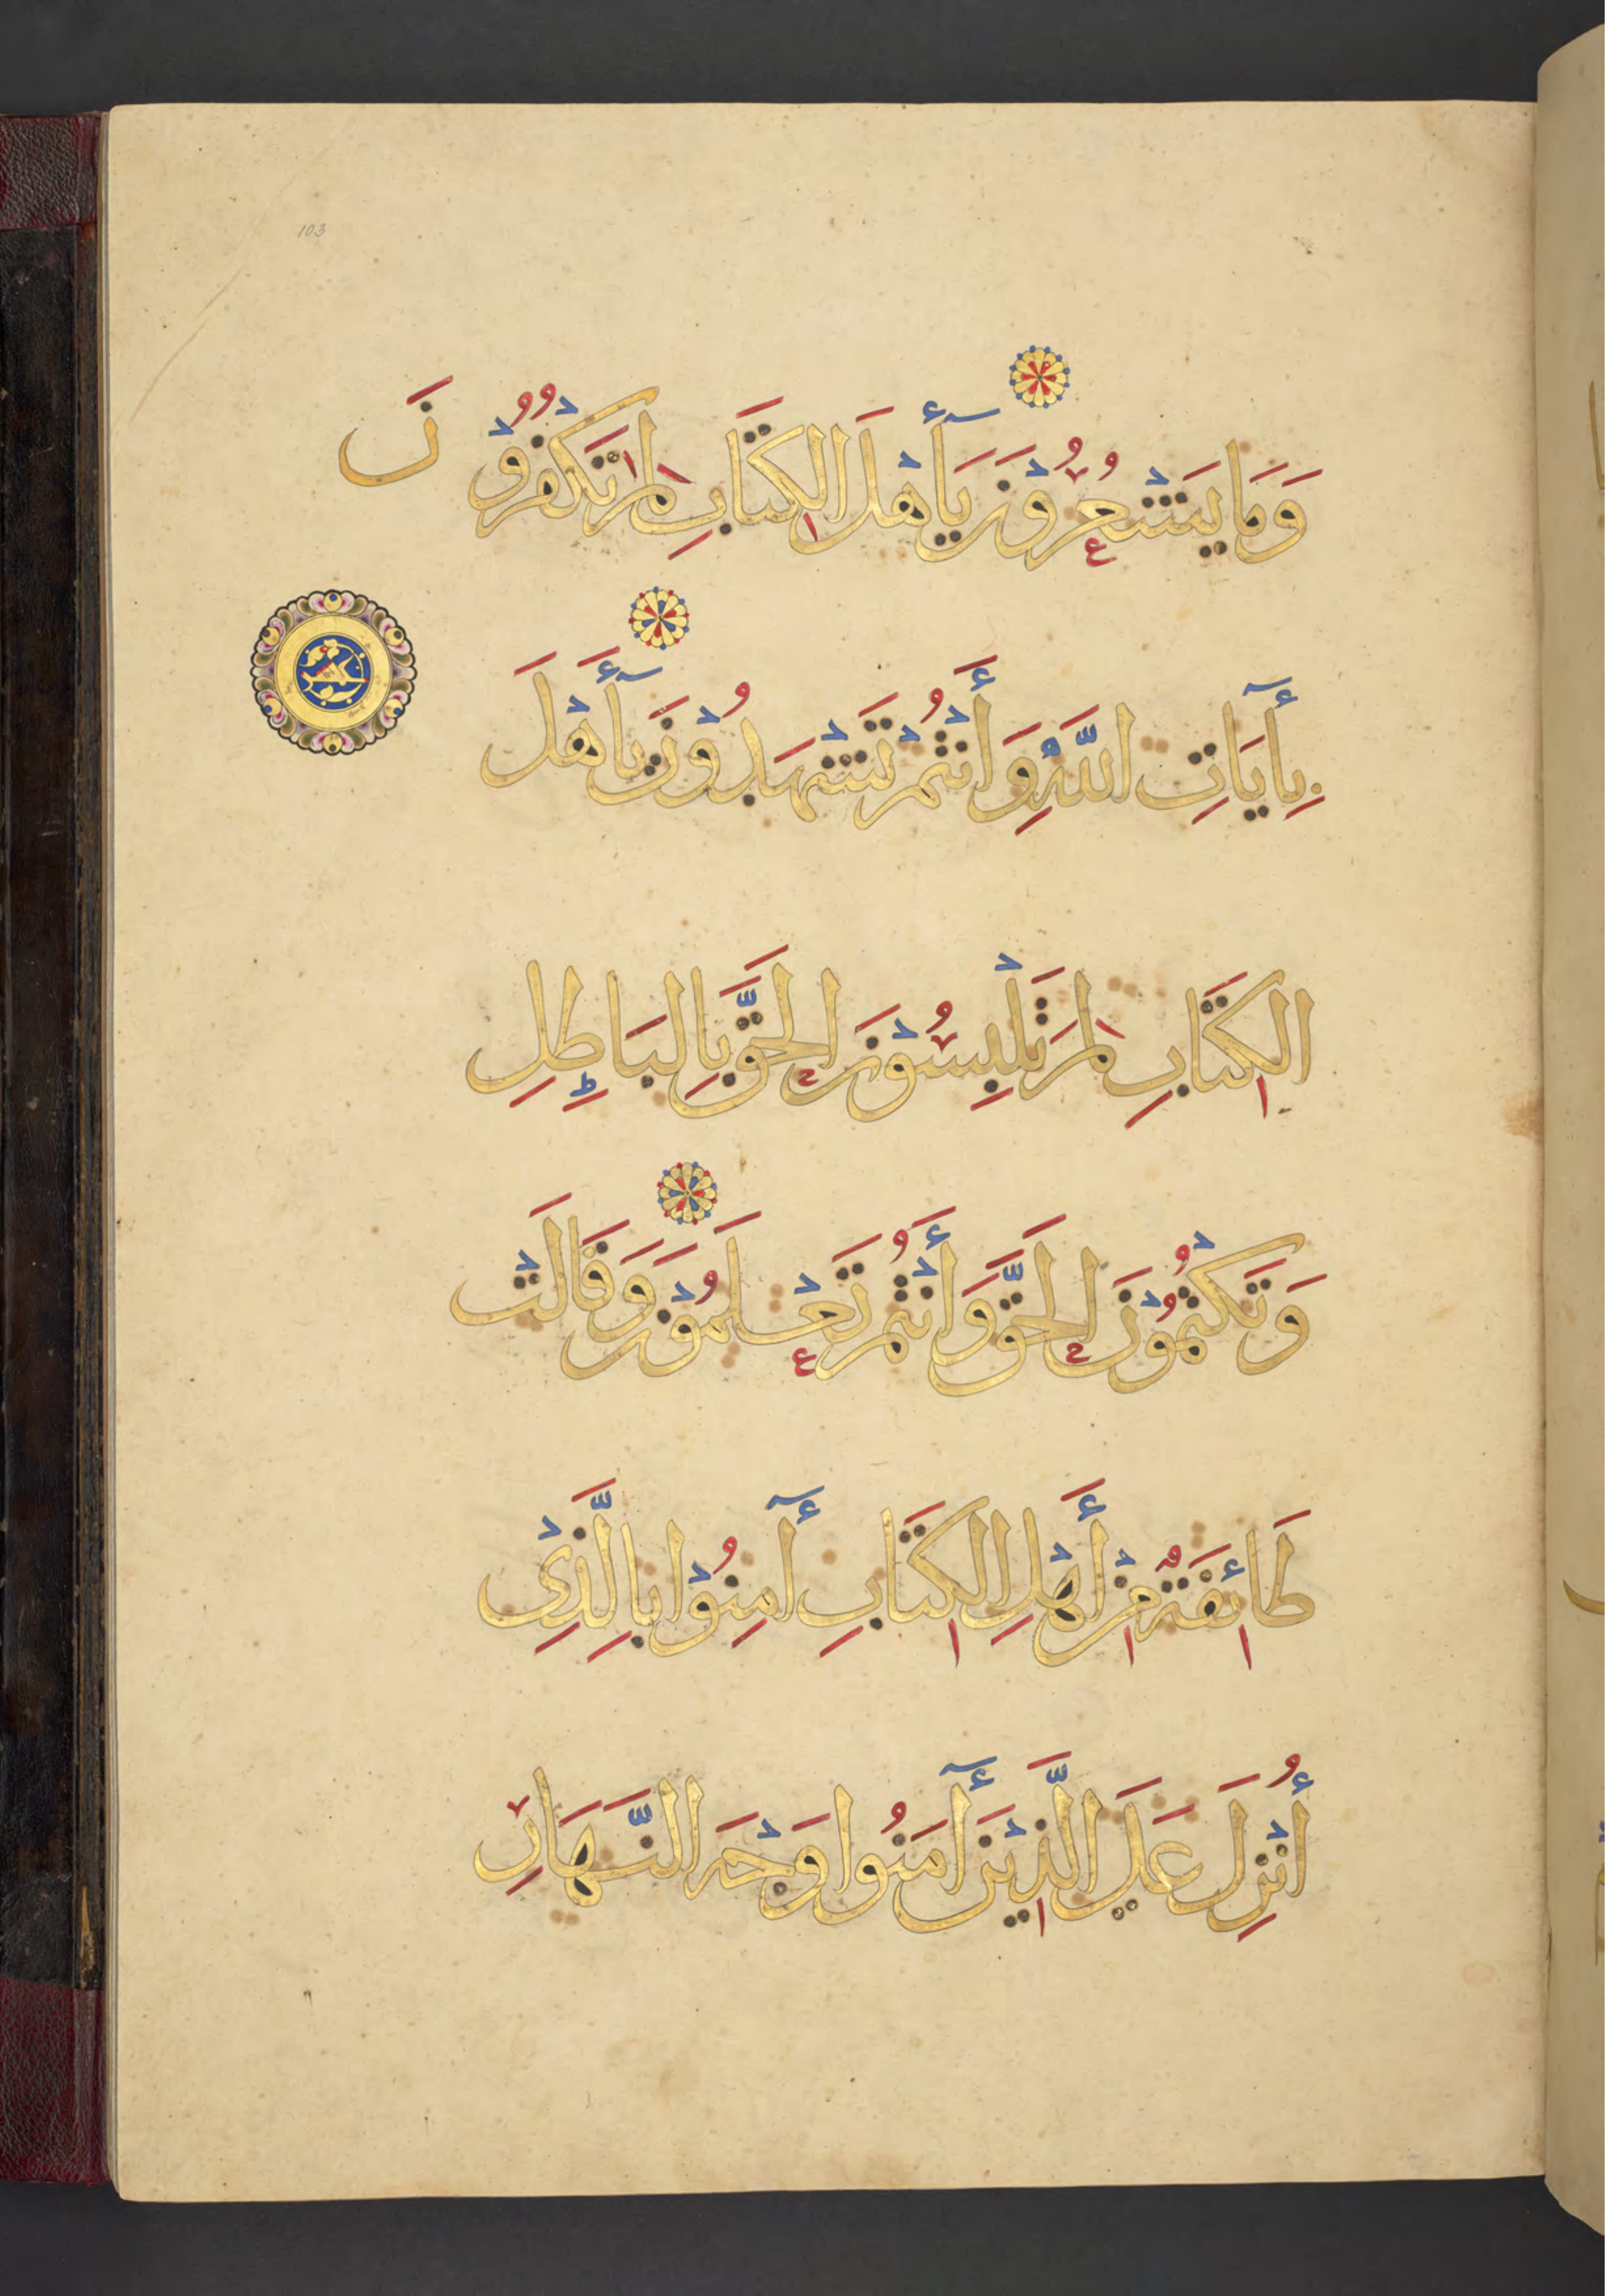 103
وَمَا يَشْعُرُوْنَ يَآأَهْلَ الكِتَابِ لِمَ تَكْفُرُوْنَ
بِآيَاتِ اللَّهِ وَأَنْتُمْ تَشْهَدُوْنَ يَآأَهْلَ
الكِتَابِ لِمَ تَلْبِسُوْنَ الحَقَّ بِالبَاطِلِ
وَتَكْتُمُوْنَ الحَقَّ وَأَنْتُمْ تَعْلَمُوْنَ وَقَالَتْ
طَائِفَةٌ مِنْ أَهْلِ الكِتَابِ آمِنُوْا بِالَّذِيْ
أُنْزِلَ عَلَى الَّذِيْنَ آمَنُوا وَجْهَ النَّهَارِ